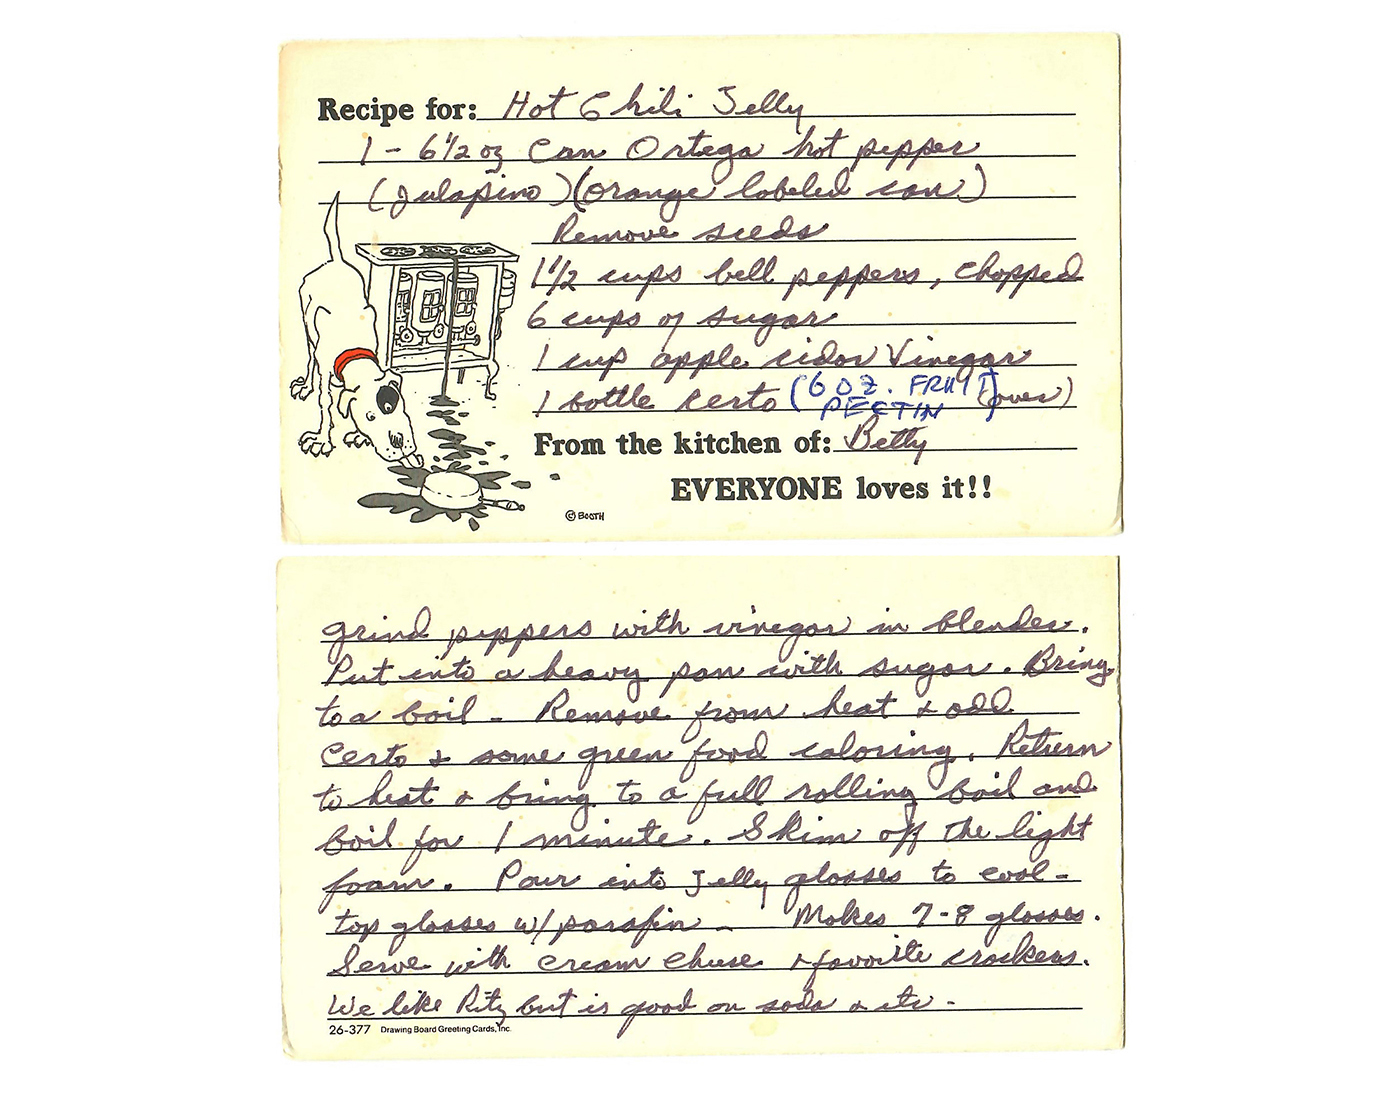 Recipe for: Hot Chili Jelly
1 - 6 1/2 oz can Ortega hot pepper
(Julapino) (orange labeled can)
Remove seeds
1 1/2 cups bell peppers, chopped
6 cups of sugar
1 cup apple cidor Vinegar
1 bottle certo (6 OZ. FRUIT PECTIN) (over)
From the kitchen of: Betty
EVERYONE loves it!!
© BOOTH
grind peppers with vinegar in blender.
Put into a heavy pan with sugar. Bring
to a boil - Remove from heat & add
Certo & some green food coloring. Return
to heat & bring to a full rolling boil and
boil for 1 minute. Skim off the light
foam. Pour into Jelly glasses to cool -
top glasses w/ parafin - Makes 7-8 glasses.
Serve with cream cheese & favorite crackers.
We like Ritz but is good on soda & etc -
26-377 Drawing Board Greeting Cards, Inc.